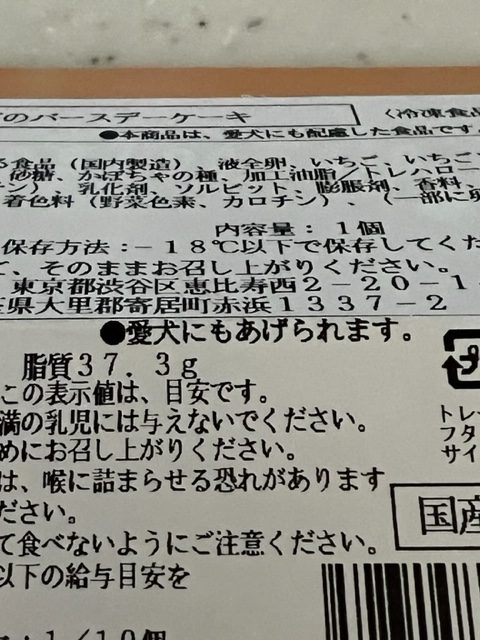 のバースデーケーキ
〈冷凍食品
●本商品は、愛犬にも配慮した食品です。
る食品（国内製造）、液全卵、いちご、いちご
砂糖、かぼちゃの種、加工油脂／トレハロー
チン）、乳化剤、ソルビット、膨脹剤、香料、
着色料（野菜色素、カロチン）、（一部に卵
内容量：１個
保存方法：－１８℃以下で保存してくだ
て、そのままお召し上がりください。
東京都渋谷区恵比寿西２－２０－１
県大里郡寄居町赤浜１３３７－２
●愛犬にもあげられます。
脂質３７．３ｇ
この表示値は、目安です。
満の乳児には与えないでください。
めにお召し上がりください。
は、喉に詰まらせる恐れがあります
ださい。
て食べないようにご注意ください。
以下の給与目安を
：１／１０個
プ
トレー
フタ
サイ
国産